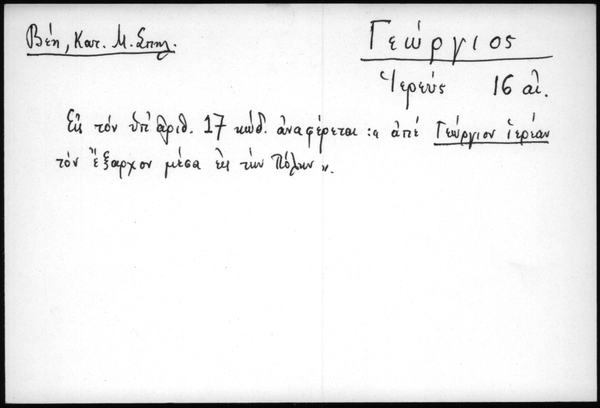 Βέη, Κατ. Μ. Σπηλ.
Γεώργιος
Ἱερεύς 16 αἰ.
Εἰς τόν ὑπ' ἀριθ. 17 κώδ. ἀναφέρεται: « ἀπέ Γεώργιον ἱερέαν
τόν ἔξαρχον μέσα εἰς τήν Πόλιν ».